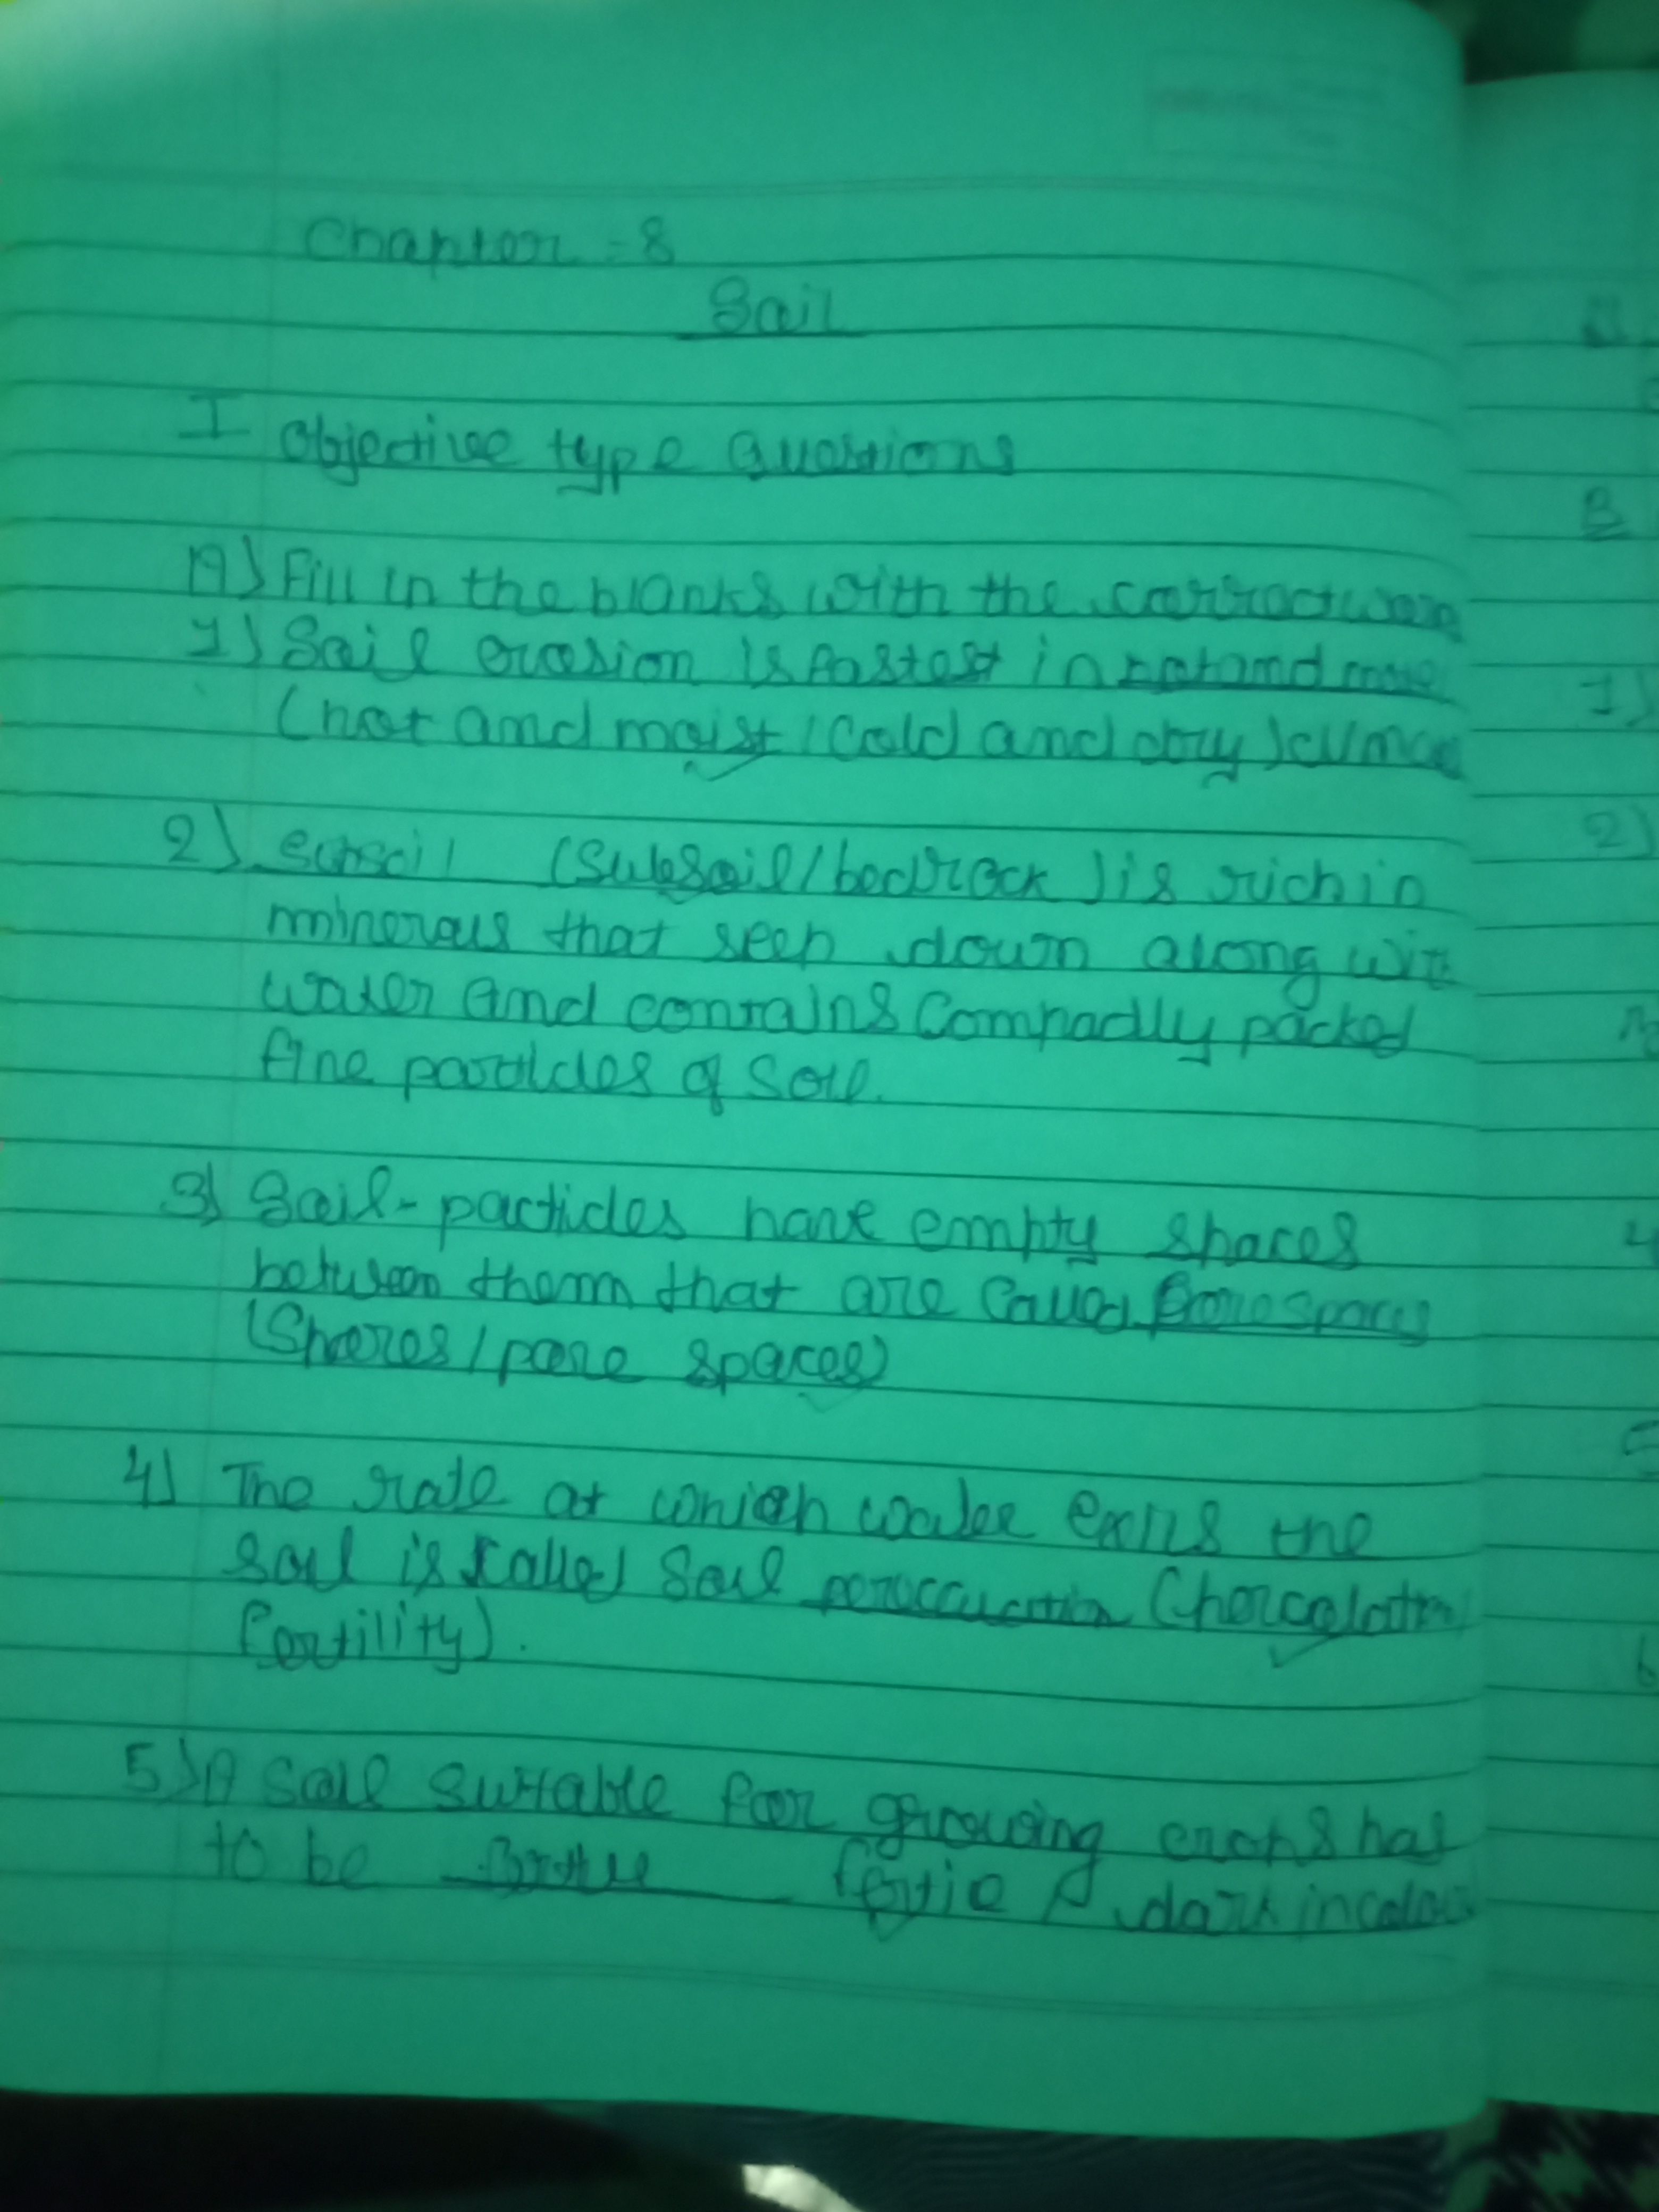 Chapter = 8
Soil
I Objective type Questions
A) Fill in the blanks with the correct
1) Soil erosion is fastest in hot and
(hot and moist / Cold and dry)
2) Subsoil (Subsoil / bedrock) is rich in
minerals that seep down along with
water and contains Compactly packed
fine particles of Soil.
3) Soil-particles have empty spaces
between them that are called Pore spaces
(Spores / pore spaces)
4) The rate at which water exits the
soil is called Soil (Percolation
fertility).
5) A Soil suitable for growing crops has
to be dark in colour
B
1)
2)
4
5
6